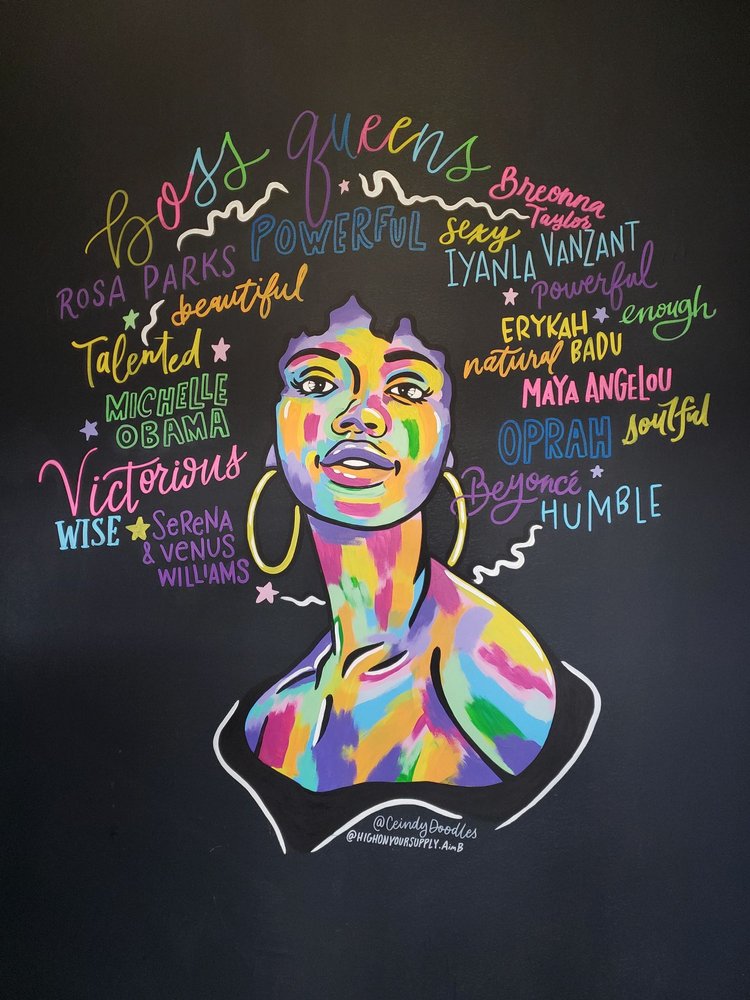 boss queens
Breonna
Taylor
POWERFUL
sexy
IYANLA VANZANT
ROSA PARKS
beautiful
powerful
enough
Talented
ERYKAH
BADU
natural
MICHELLE
OBAMA
MAYA ANGELOU
OPRAH
soulful
Victorious
Beyoncé
HUMBLE
WISE
SERENA
& VENUS
WILLIAMS
@CeindyDoodles
@HIGHONYOURSUPPLY.AimB